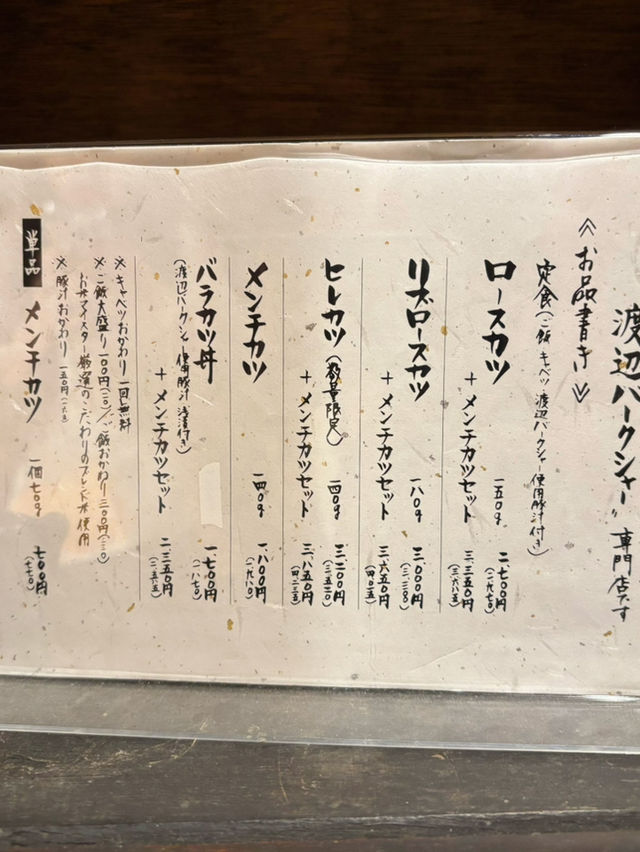 渡辺バークシャー〃 専門店です
≪お品書き≫
定食(ご飯 キャベツ 渡辺バークシャー使用豚汁付き)
ロースカツ 一五〇g 二、七〇〇円
(二、九七〇)
+メンチカツセット 三、三五〇円
(三、六八五)
リブロースカツ 一八〇g 三、〇〇〇円
(三、三〇〇)
+メンチカツセット 三、六五〇円
(四、〇一五)
ヒレカツ(数量限定) 一四〇g 三、二〇〇円
(三、五二〇)
+メンチカツセット 三、八五〇円
(四、二三五)
メンチカツ 一四〇g 一、八〇〇円
(一、九八〇)
バラカツ丼 一、七〇〇円
(一、八七〇)
(渡辺バークシャー使用豚汁 浅漬付き)
+メンチカツセット 二、三五〇円
(二、五八五)
※キャベツおかわり 一回無料
※ご飯大盛り 一〇〇円(一一〇)/ご飯おかわり 三〇〇円(三三〇)
お米マイスター厳選のこだわりのブレンド米使用
※豚汁おかわり 一五〇円(一六五)
単品 メンチカツ 一個七〇g 七〇〇円
(七七〇)